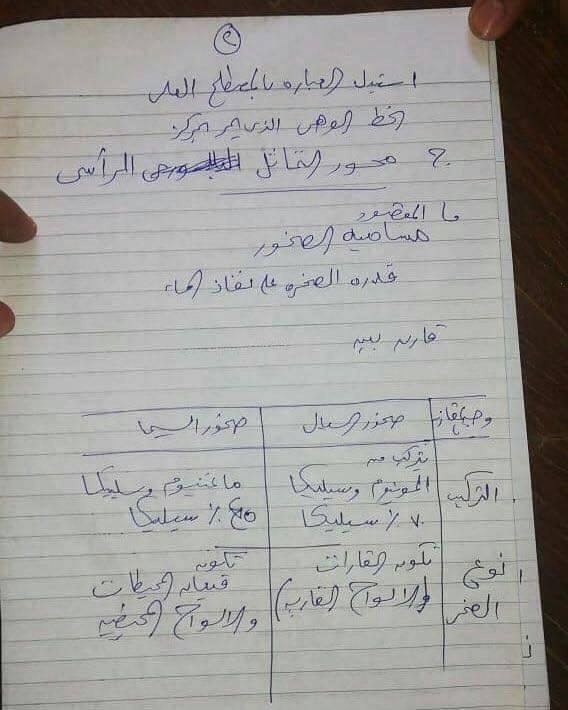 ٩
استبدل العباره بالمصطلح العلمى
الخط الوهمى الذى يمر بمركز
جـ محور التماثل الرأسى
ما المقصود
مساميه الصخور
قدره الصخره على نفاذ الماء
قارن بين
وجه المقارنة | صخور السيال | صخور السيما
التركيب | تتركب من الومنيوم وسيليكا ٧٠٪ سيليكا | ماغنيوم وسليكا ٤٥٪ سيليكا
نوعى الصخر | تكون القارات والالواح القاريه | تكون قيعان المحيطات والالواح المحيطيه